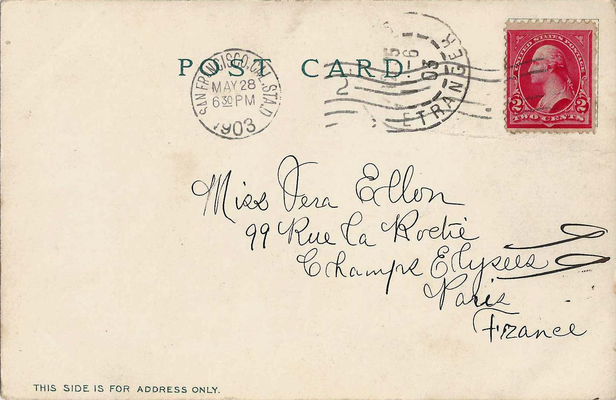 POST CARD
SAN FRANCISCO, CAL. STA. D
MAY 28
6 30 PM
1903
15
-6
03
ETRANGER
UNITED STATES POSTAGE
2 2
TWO CENTS
Miss Vera Ellon
99 Rue La Roctié
Champs Elysees
Paris
France
THIS SIDE IS FOR ADDRESS ONLY.